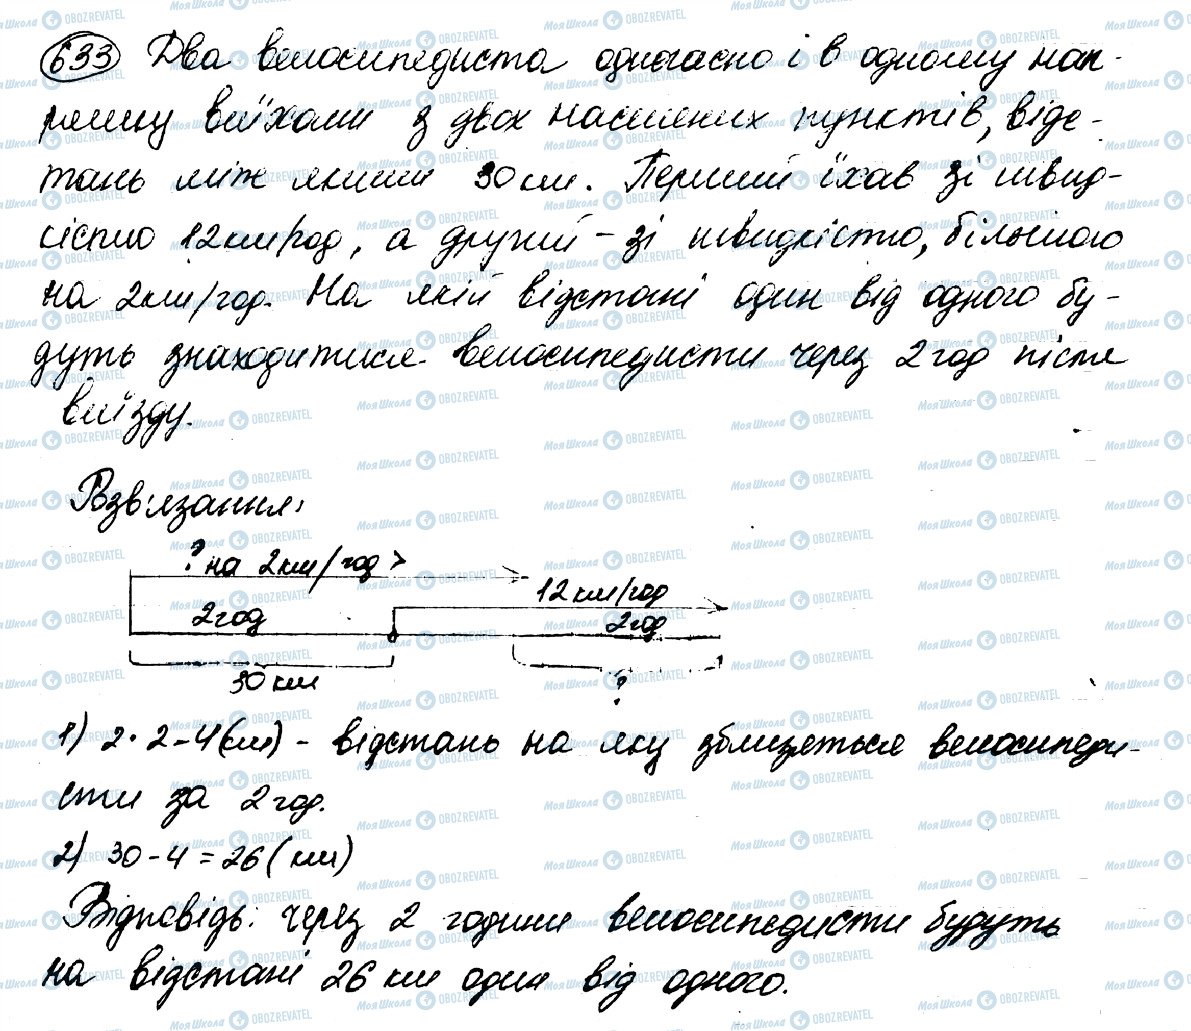 633 Два велосипедиста одночасно і в одному нап-
рямку виїхали з двох населених пунктів, відс-
тань між якими 30 км. Перший їхав зі швид-
кістю 12 км/год, а другий - зі швидкістю, більшою
на 2 км/год. На якій відстані один від одного бу-
дуть знаходитися велосипедисти через 2 год після
виїзду.
Розв'язання:
? на 2 км/год >
12 км/год
2 год
2 год
30 км
?
1) 2 · 2 - 4 (км) - відстань на яку зблизяться велосипеди-
сти за 2 год.
2) 30 - 4 = 26 (км)
Відповідь: через 2 години велосипедисти будуть
на відстані 26 км один від одного.
Моя Школа OBOZREVATEL